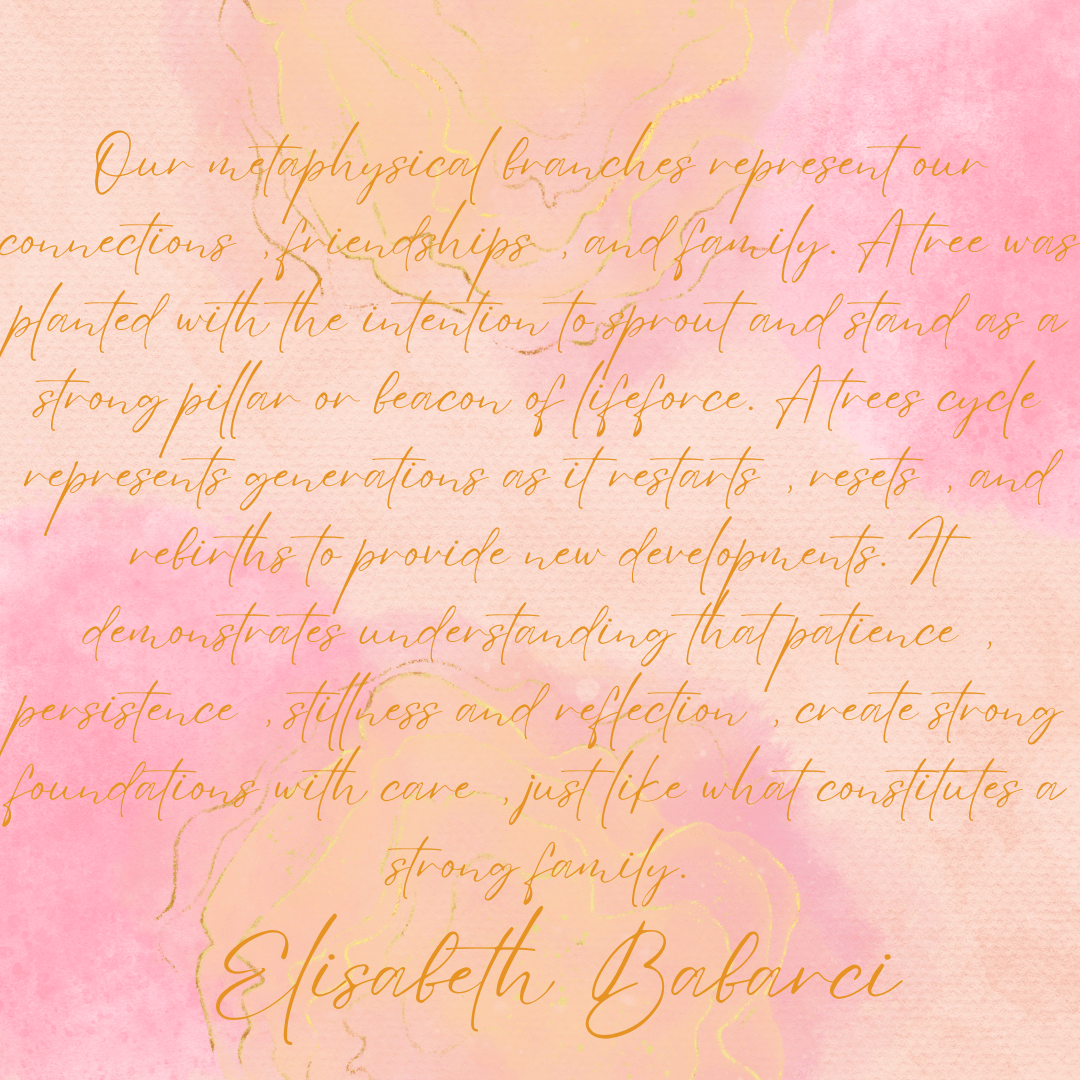 Our metaphysical branches represent our
connections , friendships , and family. A tree was
planted with the intention to sprout and stand as a
strong pillar or beacon of lifeforce. A trees cycle
represents generations as it restarts , resets , and
rebirths to provide new developments. It
demonstrates understanding that patience ,
persistence , stillness and reflection , create strong
foundations with care , just like what constitutes a
strong family.
Elisabeth Babarci